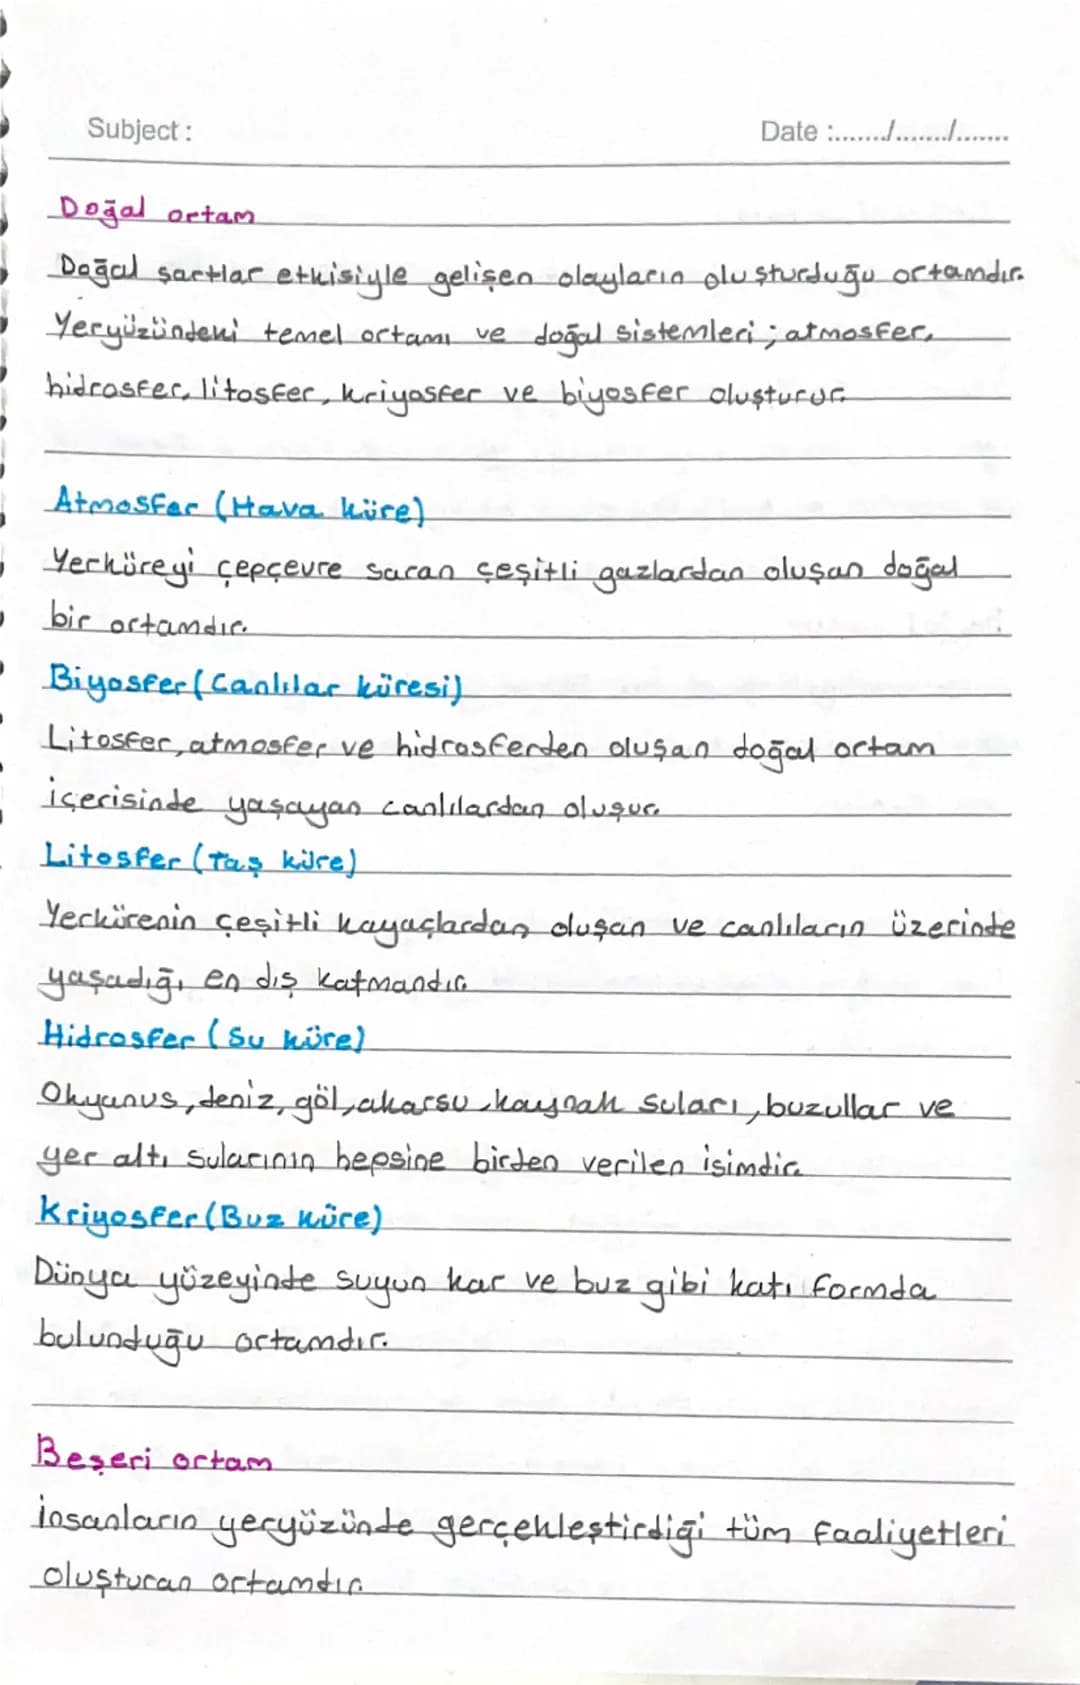 Subject :
Date :......./......./.......
Doğal ortam
Doğal şartlar etkisiyle gelişen olayların oluşturduğu ortamdır.
Yeryüzündeki temel ortamı ve doğal sistemleri ; atmosfer,
hidrosfer, litosfer, kriyosfer ve biyosfer oluşturur.
Atmosfer (Hava küre)
Yerküreyi çepçevre saran çeşitli gazlardan oluşan doğal
bir ortamdır.
Biyosfer (Canlılar küresi)
Litosfer, atmosfer ve hidrosferden oluşan doğal ortam
içerisinde yaşayan canlılardan oluşur.
Litosfer (Taş küre)
Yerkürenin çeşitli kayaçlardan oluşan ve canlıların üzerinde
yaşadığı en dış katmandır.
Hidrosfer (Su küre)
Okyanus, deniz, göl, akarsu, kaynak suları, buzullar ve
yer altı sularının hepsine birden verilen isimdir.
Kriyosfer (Buz küre)
Dünya yüzeyinde suyun kar ve buz gibi katı formda
bulunduğu ortamdır.
Beşeri ortam
İnsanların yeryüzünde gerçekleştirdiği tüm faaliyetleri
oluşturan ortamdır.